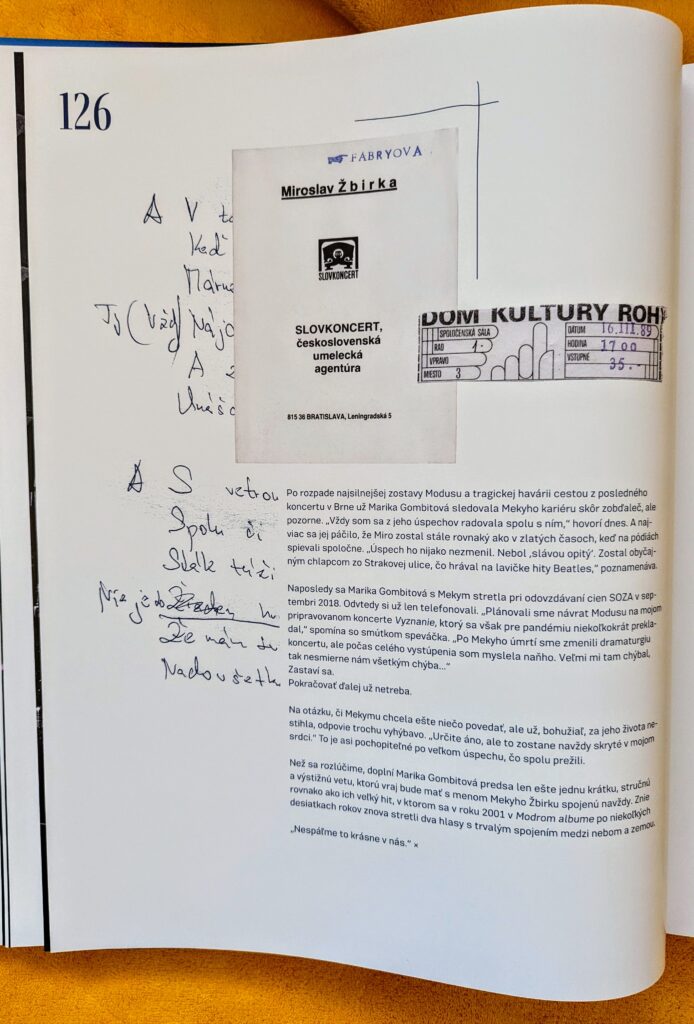 126
FABRYOVA
Miroslav Žbirka
SLOVKONCERT
SLOVKONCERT,
československá
umelecká
agentúra
815 36 BRATISLAVA, Leningradská 5
DOM KULTURY ROH
SPOLOČENSKÁ SÁLA
RAD 1.
VPRAVO
MIESTO 3
DATUM 16.III.89
HODINA 17 00
VSTUPNÉ 35.-
A V
Keď
Márne
Ty (Vžd) Nájd
A
Unáša
A S vetrom
Spolu či
Stále
Nie je
Že mám
Nadovšetk
Po rozpade najsilnejšej zostavy Modusu a tragickej havárii cestou z posledného
koncertu v Brne už Marika Gombitová sledovala Mekyho kariéru skôr zobďaleč, ale
pozorne. „Vždy som sa z jeho úspechov radovala spolu s ním,“ hovorí dnes. A naj-
viac sa jej páčilo, že Miro zostal stále rovnaký ako v zlatých časoch, keď na pódiách
spievali spoločne. „Úspech ho nijako nezmenil. Nebol ‚slávou opitý‘. Zostal obyčaj-
ným chlapcom zo Strakovej ulice, čo hrával na lavičke hity Beatles,“ poznamenáva.
Naposledy sa Marika Gombitová s Mekym stretla pri odovzdávaní cien SOZA v sep-
tembri 2018. Odvtedy si už len telefonovali. „Plánovali sme návrat Modusu na mojom
pripravovanom koncerte Vyznanie, ktorý sa však pre pandémiu niekoľkokrát prekla-
dal,“ spomína so smútkom speváčka. „Po Mekyho úmrtí sme zmenili dramaturgiu
koncertu, ale počas celého vystúpenia som myslela naňho. Veľmi mi tam chýbal,
tak nesmierne nám všetkým chýba...“
Zastaví sa.
Pokračovať ďalej už netreba.
Na otázku, či Mekymu chcela ešte niečo povedať, ale už, bohužiaľ, za jeho života ne-
stihla, odpovie trochu vyhýbavo. „Určite áno, ale to zostane navždy skryté v mojom
srdci.“ To je asi pochopiteľné po veľkom úspechu, čo spolu prežili.
Než sa rozlúčime, doplní Marika Gombitová predsa len ešte jednu krátku, stručnú
a výstižnú vetu, ktorú vraj bude mať s menom Mekyho Žbirku spojenú navždy. Znie
rovnako ako ich veľký hit, v ktorom sa v roku 2001 v Modrom albume po niekoľkých
desiatkach rokov znova stretli dva hlasy s trvalým spojením medzi nebom a zemou.
„Nespáľme to krásne v nás.“ ×